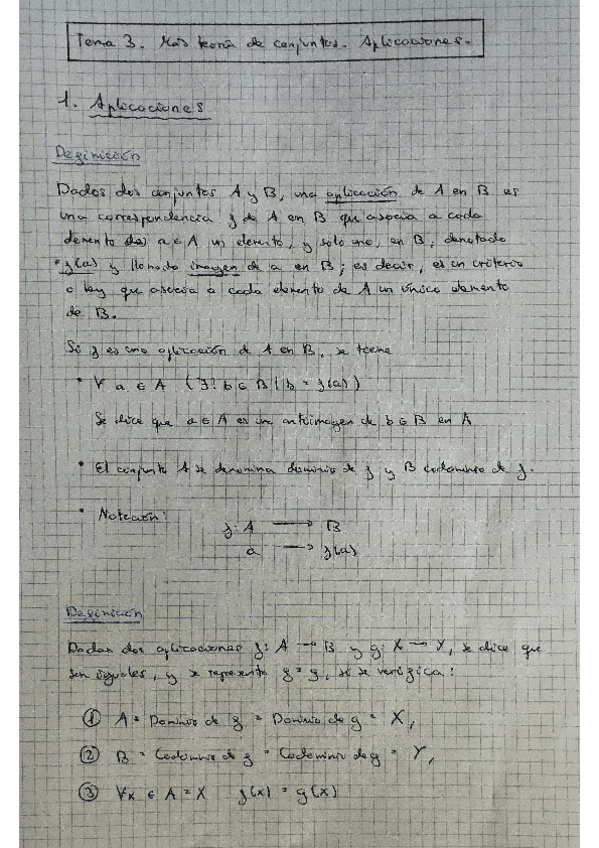 Tema 3. Más teoría de conjuntos. Aplicaciones.
1. Aplicaciones
Definición
Dados dos conjuntos A y B, una aplicación de A en B es
una correspondencia f de A en B que asocia a cada
elemento de a ∈ A un elemento, y sólo uno, en B, denotado
f(a) y llamado imagen de a en B; es decir, es un criterio
o ley que asocia a cada elemento de A un único elemento
de B.
Si f es una aplicación de A en B, se tiene
• ∀ a ∈ A (∃! b ∈ B | b = f(a))
Se dice que a ∈ A es un antimagen de b ∈ B en A
• El conjunto A se denomina dominio de f y B codominio de f.
• Notación:
f: A → B
a → f(a)
Definición
Dadas dos aplicaciones f: A → B y g: X → Y, se dice que
son iguales, y se representa f = g, si se verifica:
① A = Dominio de f = Dominio de g = X,
② B = Codominio de f = Codominio de g = Y,
③ ∀x ∈ A = X f(x) = g(x)